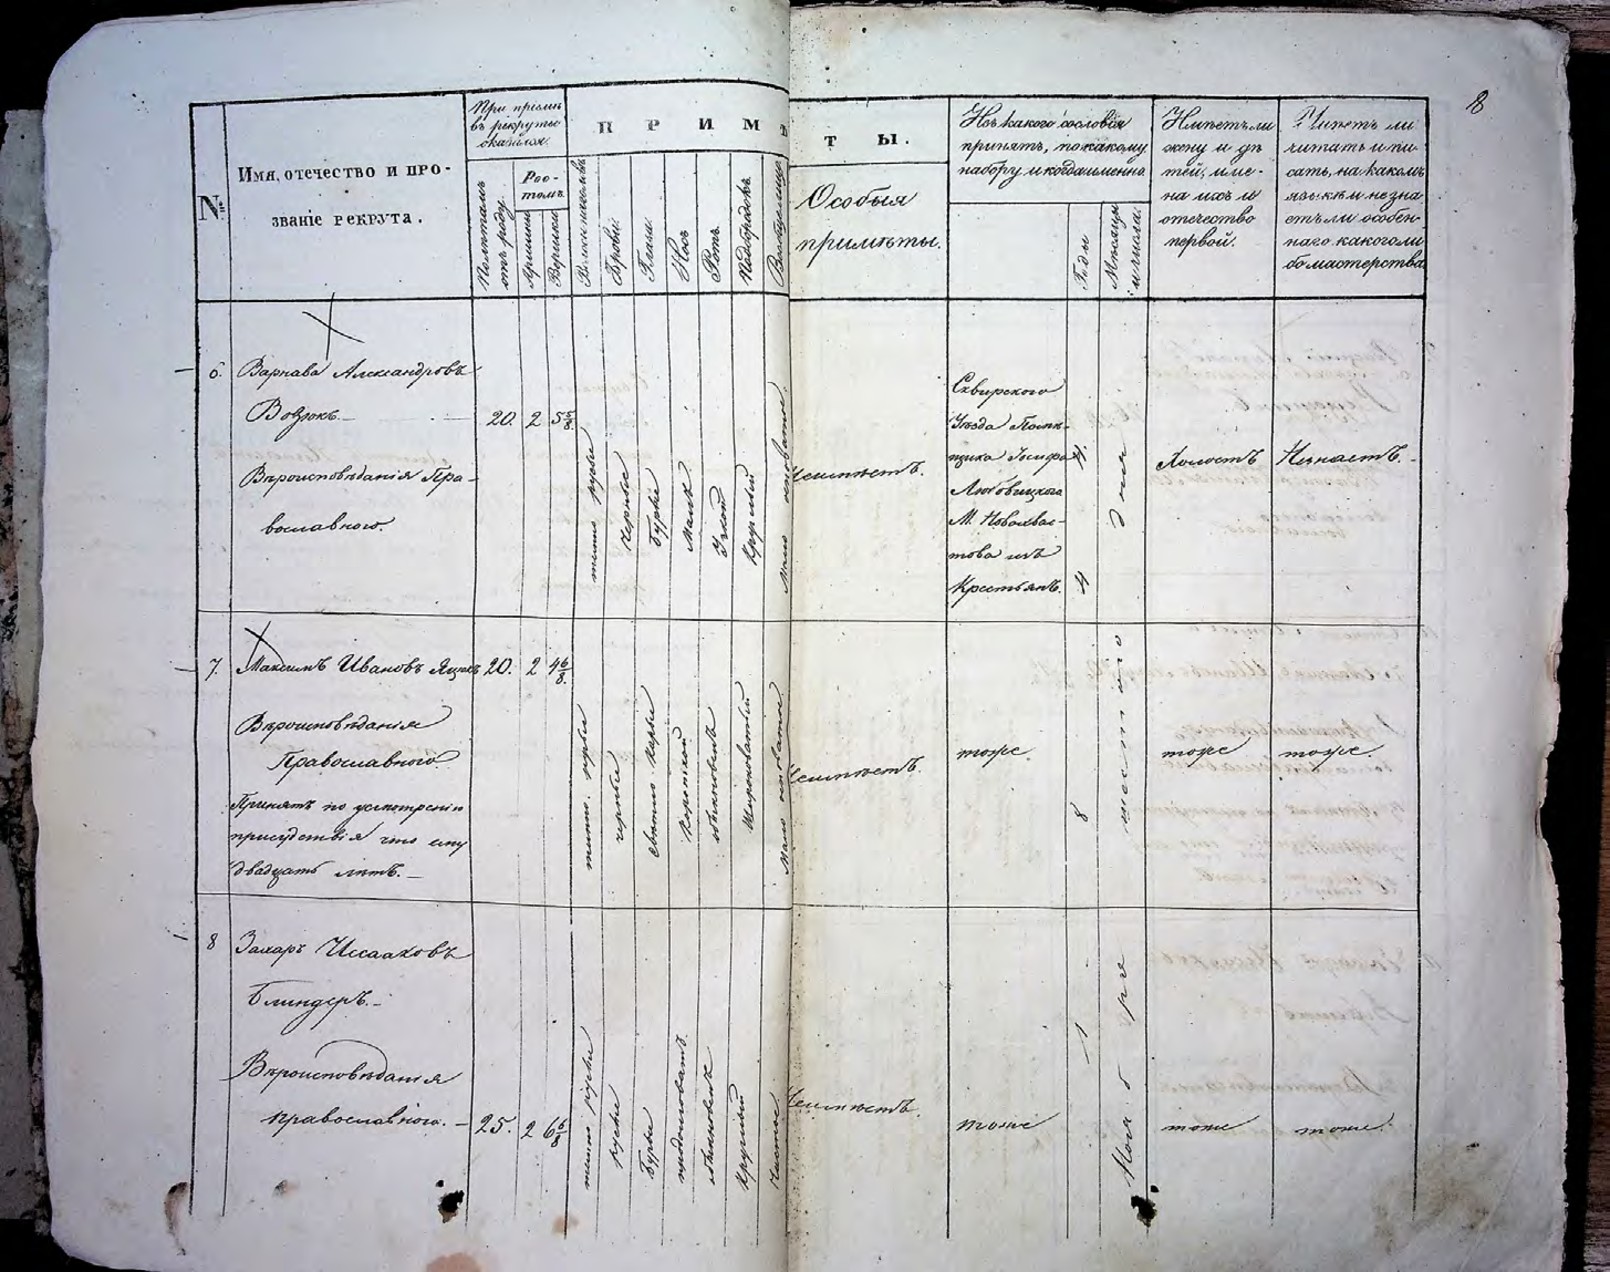 8
№
Имя, отечество и про-
званіе рекрута.
При пріемѣ
въ рекруты
оказался.
Полѣтамъ
отъ роду.
Рос-
томъ.
Аршины
Вершки
П Р И М Ѣ Т Ы.
Брови
Глаза.
Носъ
Ротъ.
Подбородокъ
Особыя
примѣты.
Изъ какого сословія
принятъ, по какому
набору и когда именно.
Годы
Мѣсяцы
и числа.
Имѣетъ ли
жену и дѣ
тей, име-
на ихъ и
отечество
первой.
Умѣетъ ли
читать и пи-
сать, на какомъ
языкѣ и не зна
етъ ли особен-
наго какого ли
бо мастерства
6.
Варнава Александровъ
20. 2 5
Вѣроисповѣданія Пра-
вославнаго.
темно русые
черные
Бурые
Малъ
Узкой
Круглый
Неимѣетъ.
Сквирскаго
Уѣзда Помѣ-
щика Іосифа
М. Новохвас-
това изъ
Крестьянъ.
4
Холостъ
Незнаетъ.
7.
Максимъ Ивановъ
20. 2 4 6/8
Вѣроисповѣданія
Православнаго
Принятъ по усмотренію
присудствія что ему
двадцать лѣтъ.
темно русые
черные
свѣтло карые
Короткой
обыкновенъ
Широковатый
Неимѣетъ.
тоже
8
шестого
тоже
тоже.
8
Захаръ Иссааковъ
Блиндеръ.
Вѣроисповѣданія
православнаго.
25. 2 6 6/8
темно русые
русые
Бурые
продолговатъ
обыкновенъ
Круглый
Чистое
Неимѣетъ.
тоже
1
Ноября
тоже
тоже.